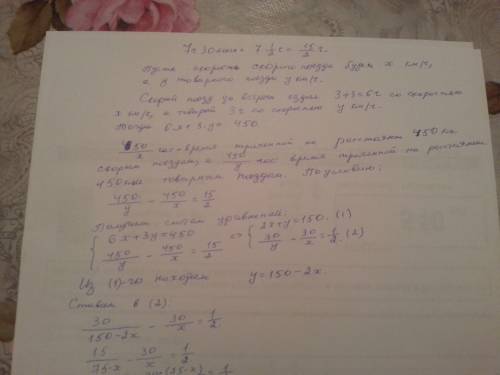 7 ч 30 мин = 7 1/2 ч = 15/2 ч.
Пусть скорость скорого поезда будет x км/ч,
а у товарного поезда y км/ч.
Скорый поезд до встречи ездил 3+3=6 ч со скоростью
x км/ч, а товарный 3 ч со скоростью y км/ч.
Тогда 6x+3·y=450.
450/x час-время на расстояние 450 км
скорым поездом, а 450/y час время на расстояние
450 км товарным поездом. По условию:
450/y - 450/x = 15/2
Получим систему уравнений:
{ 6x+3y=450 ⇔ { 2x+y=150. (1)
450/y - 450/x = 15/2 30/y - 30/x = 1/2. (2)
Из (1)-го находим y=150-2x.
Ставим в (2):
30/(150-2x) - 30/x = 1/2
15/(75-x) - 30/x = 1/2